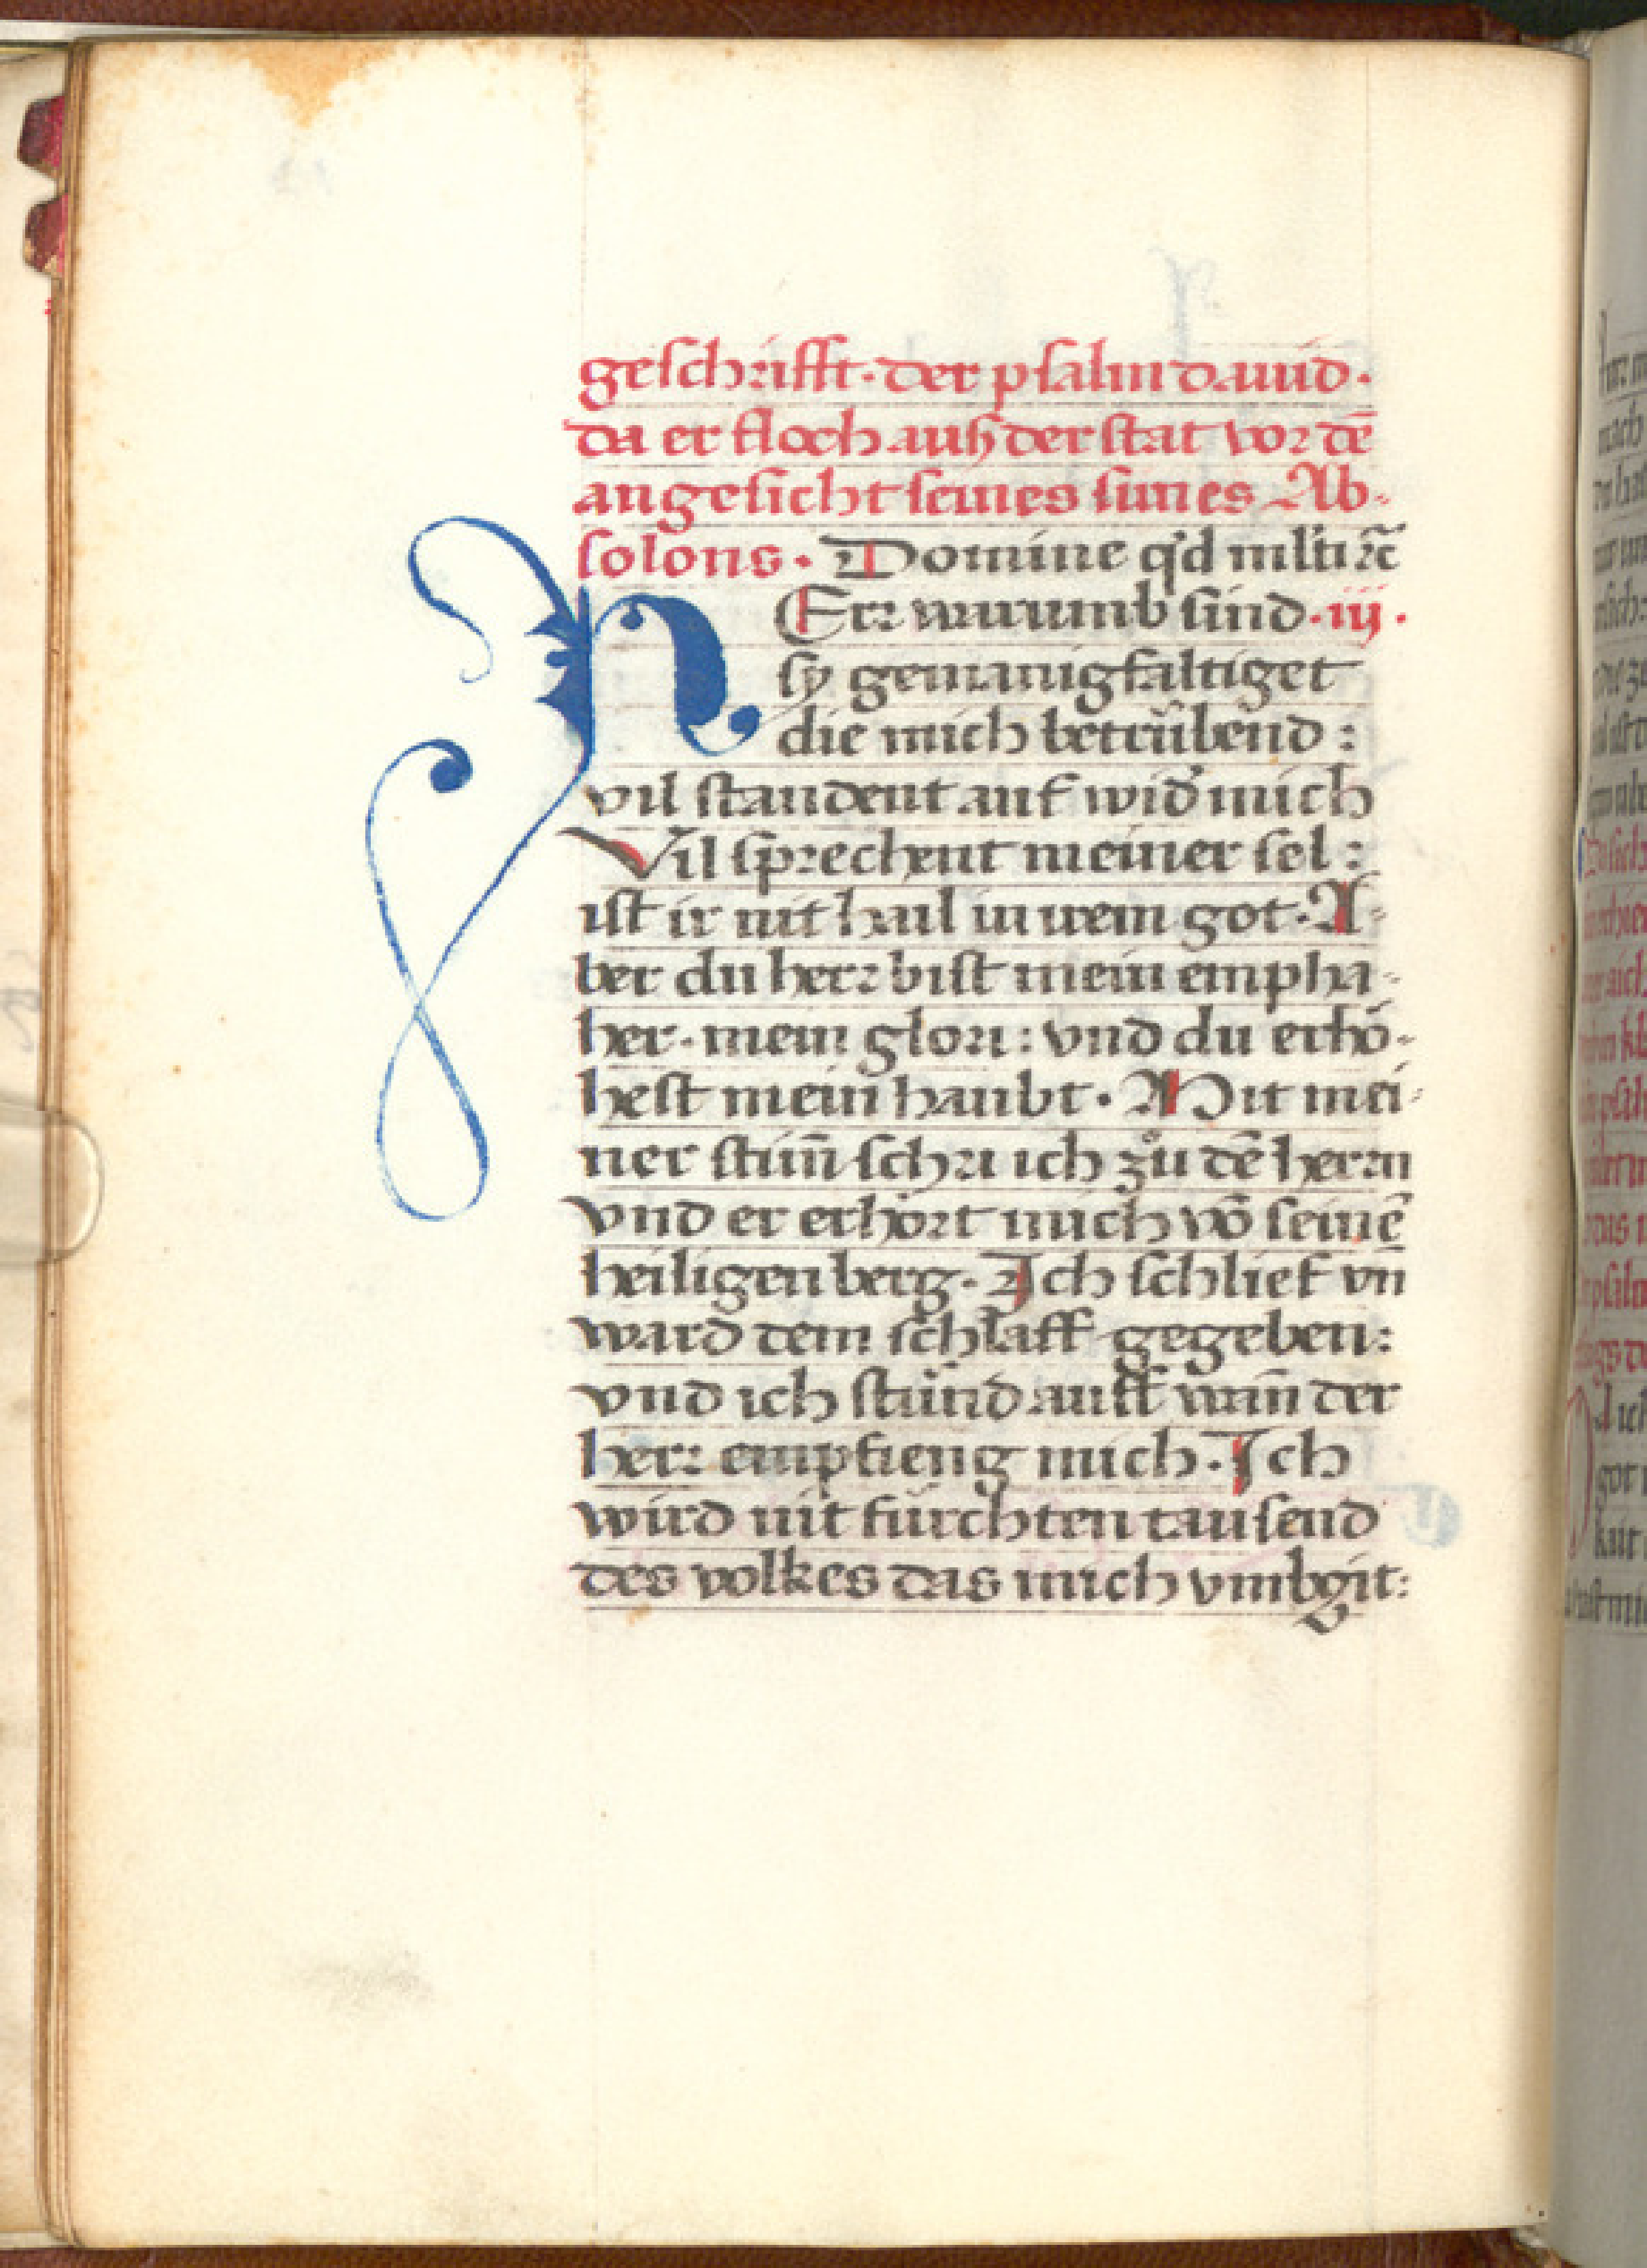 geschrifft · der psalm dauid ·
da er floch auß der stat vor dē
angesicht seines sunes Ab-
solons · Domine q̇d mlti rc̄
HErr warumb sind · iij ·
sy gemanigfaltiget
die mich betrübend :
vil standent auf wid̛ mich
Vil sprechent meiner sel :
ist ir nit hail in irem got · A-
ber du herr bist mein empha-
her · mein glori : vnd du erhö-
hest mein haubt · Mit mei-
ner stim̄ schri ich zů dē herrn
vnd er erhört mich vō seinē
heiligen berg · Ich schlief vn̄
ward dem schlaff gegeben :
vnd ich stůnd auff wan̄ der
herr empfieng mich · Ich
wird nit fürchten tausend
des volkes das mich vmbgit :